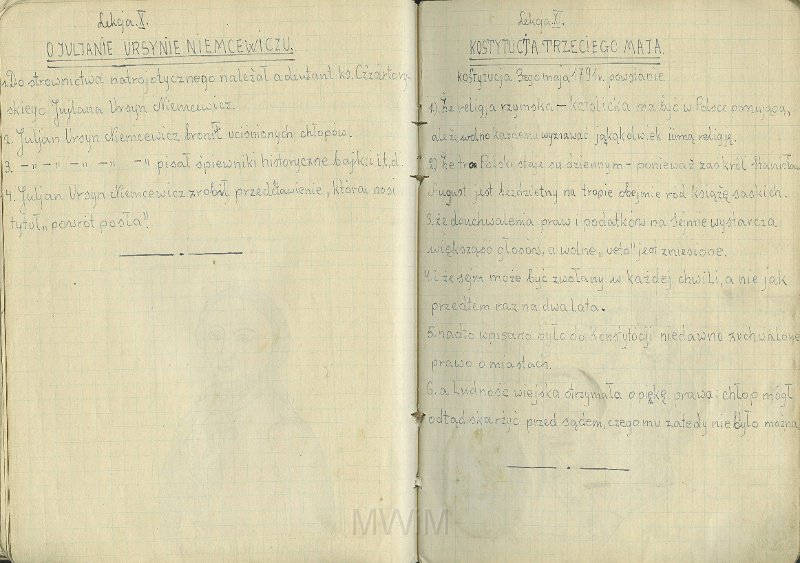 Lekcja. X.
O JULJANIE URSYNIE NIEMCEWICZU.
1. Do stronnictwa patrjotycznego należał adiutant ks. Czartory-
skiego Juljana Ursyn Niemcewicz.
2. Juljan Ursyn Niemcewicz bronił uciśnionych chłopów.
3. –„– –„– –„– –„ pisał śpiewniki historyczne bajki i t.d.
4. Juljan Ursyn Niemcewicz zrobił przedstawienie, która nosi
tytuł „powrót posła”.
Lekcja. X.
KOSTYTUCJA TRZECIEGO MAJA.
Kostytucja 3ego maja 1791r. powstanie
1) Że religja rzymsko – katolicka ma być w Polsce panującą,
ale że wolno każdemu wyznawać jakąkolwiek inną religję.
2) Że tron Polski staje się dziennym – ponieważ zaś król Stanisław
August jest bezdzietny na tropie obejmie ród książę saskich.
3. że do uchwalenia praw i podatków na sejmie wystarcza
większość głosów, a wolne „veto” jest zniesione.
4. i że sejm może być zwołany w każdej chwili, a nie jak
przedtem raz na dwa lata.
5. nadto wpisano było do Konstytucji niedawno zuchwalone
prawo o miastach.
6. a ludność wiejska otrzymała opiękę prawa i chłop mógł
odtąd skarżyć przed sądem, czego mu zatedy nie było można
MWiM